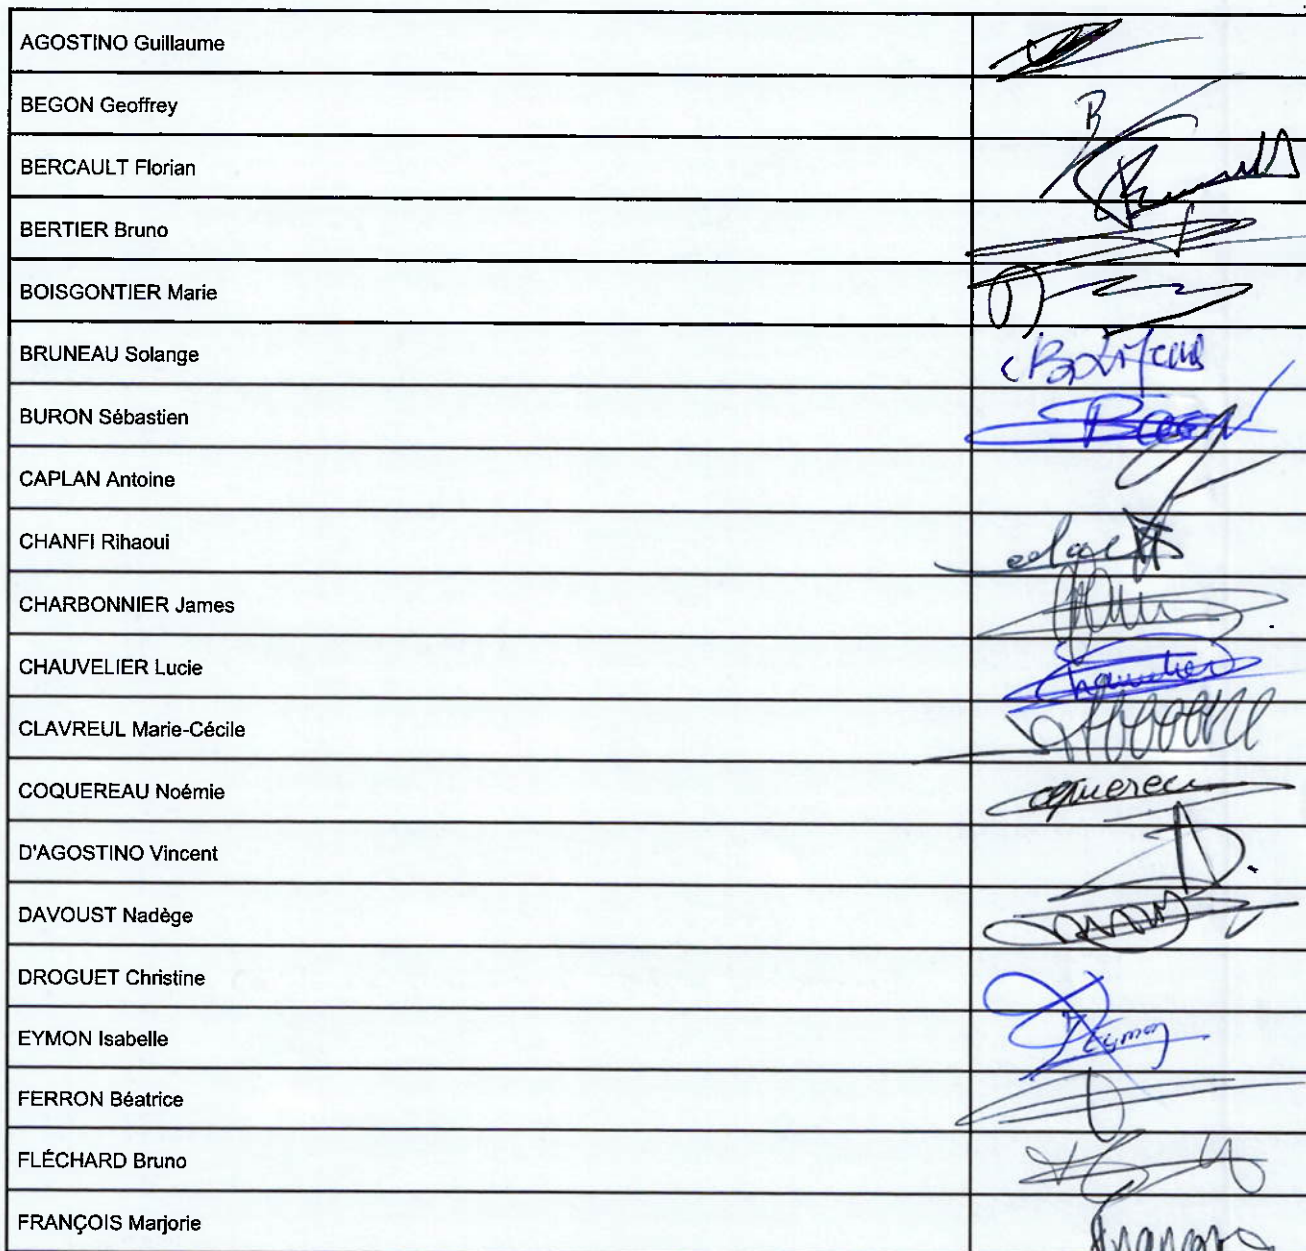 AGOSTINO Guillaume
BEGON Geoffrey
B
BERCAULT Florian
BERTIER Bruno
BOISGONTIER Marie
BRUNEAU Solange
BURON Sébastien
CAPLAN Antoine
CHANFI Rihaoui
CHARBONNIER James
CHAUVELIER Lucie
CLAVREUL Marie-Cécile
COQUEREAU Noémie
D'AGOSTINO Vincent
DAVOUST Nadège
DROGUET Christine
EYMON Isabelle
Eymon
FERRON Béatrice
FLÉCHARD Bruno
FRANÇOIS Marjorie